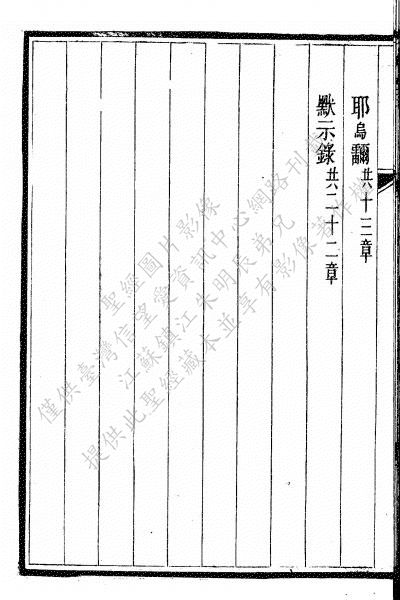 耶烏 共十三章
默示錄 共二十二章
聖經圖片影像
僅供臺灣信望愛資訊中心網路刊載
江蘇鎮江朱明辰弟兄
提供此聖經藏本並享有影像著作權